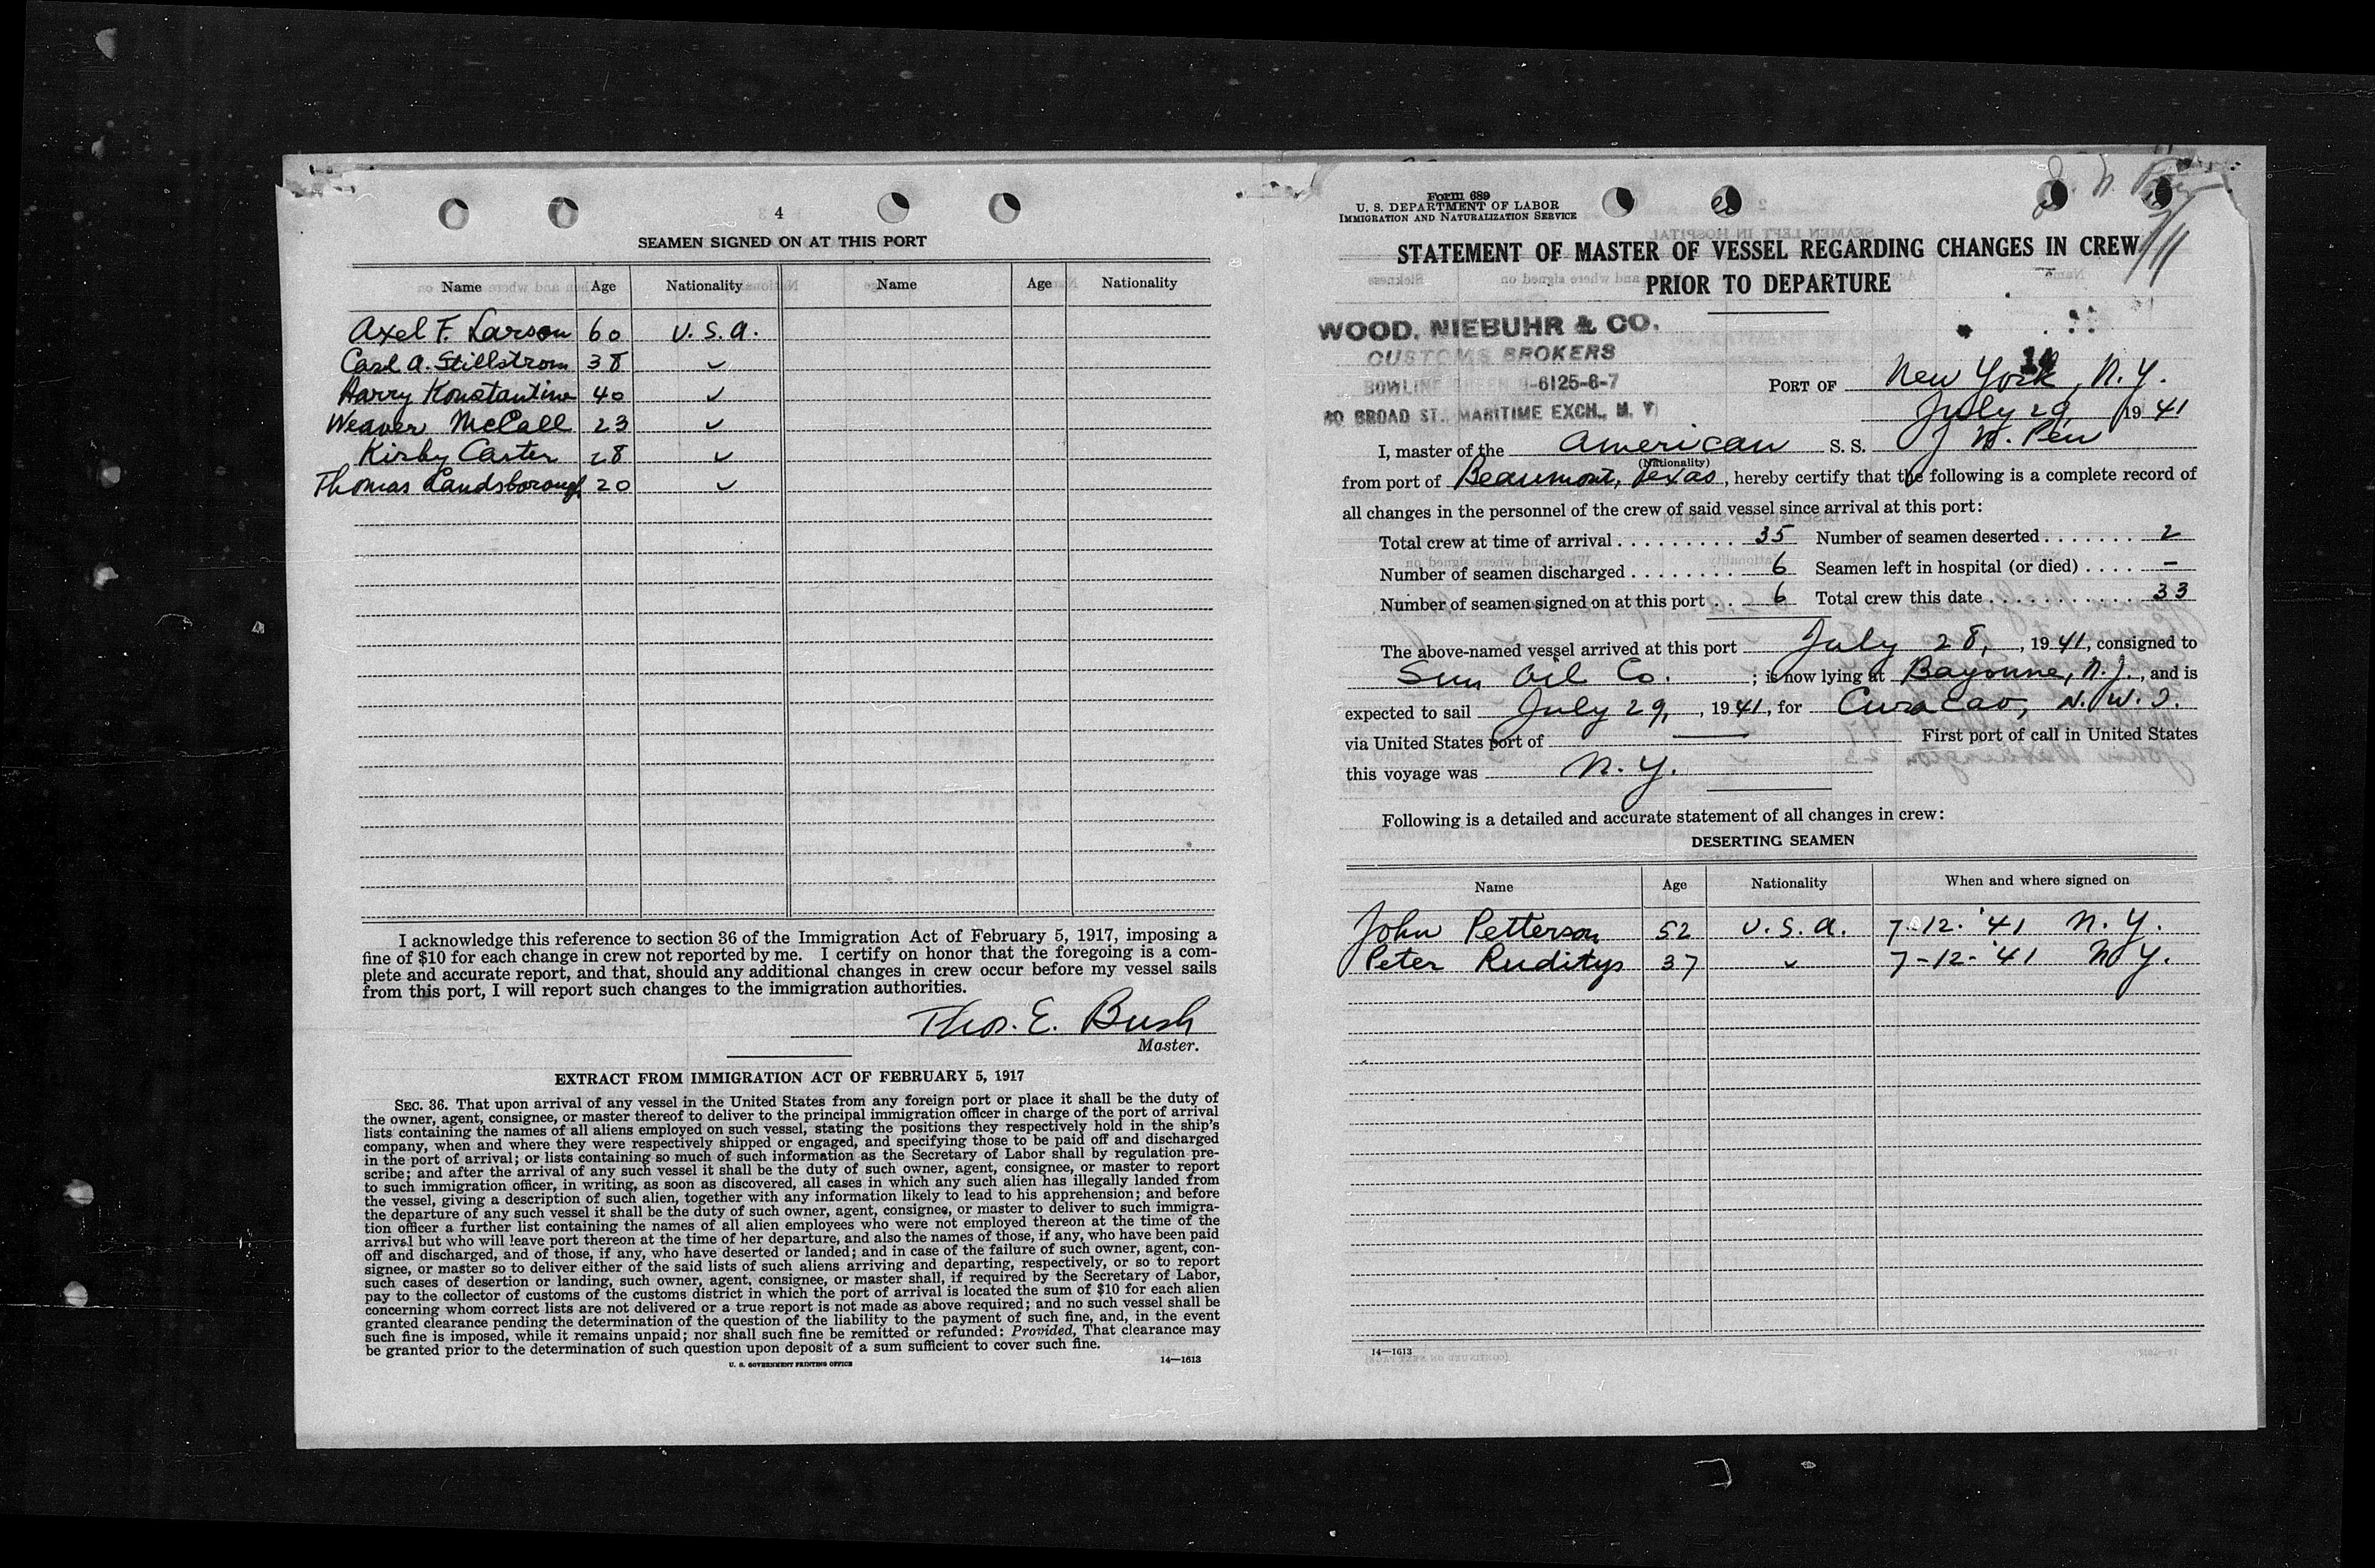 4
SEAMEN SIGNED ON AT THIS PORT
Name Age Nationality Name Age Nationality
Axel F. Larson 60 U.S.A.
Carl A. Stillstrom 38 ✓
Harry Konstantine 40 ✓
Weaver McCall 23 ✓
Kirby Carter 28 ✓
Thomas Landsborough 20 ✓
I acknowledge this reference to section 36 of the Immigration Act of February 5, 1917, imposing a
fine of $10 for each change in crew not reported by me. I certify on honor that the foregoing is a com-
plete and accurate report, and that, should any additional changes in crew occur before my vessel sails
from this port, I will report such changes to the immigration authorities.
Thos. E. Bush
Master.
EXTRACT FROM IMMIGRATION ACT OF FEBRUARY 5, 1917
SEC. 36. That upon arrival of any vessel in the United States from any foreign port or place it shall be the duty of
the owner, agent, consignee, or master thereof to deliver to the principal immigration officer in charge of the port of arrival
lists containing the names of all aliens employed on such vessel, stating the positions they respectively hold in the ship's
company, when and where they were respectively shipped or engaged, and specifying those to be paid off and discharged
in the port of arrival; or lists containing so much of such information as the Secretary of Labor shall by regulation pre-
scribe; and after the arrival of any such vessel it shall be the duty of such owner, agent, consignee, or master to report
to such immigration officer, in writing, as soon as discovered, all cases in which any such alien has illegally landed from
the vessel, giving a description of such alien, together with any information likely to lead to his apprehension; and before
the departure of any such vessel it shall be the duty of such owner, agent, consignee, or master to deliver to such immigra-
tion officer a further list containing the names of all alien employees who were not employed thereon at the time of the
arrival but who will leave port thereon at the time of her departure, and also the names of those, if any, who have been paid
off and discharged, and of those, if any, who have deserted or landed; and in case of the failure of such owner, agent, con-
signee, or master so to deliver either of the said lists of such aliens arriving and departing, respectively, or so to report
such cases of desertion or landing, such owner, agent, consignee, or master shall, if required by the Secretary of Labor,
pay to the collector of customs of the customs district in which the port of arrival is located the sum of $10 for each alien
concerning whom correct lists are not delivered or a true report is not made as above required; and no such vessel shall be
granted clearance pending the determination of the question of the liability to the payment of such fine, and, in the event
such fine is imposed, while it remains unpaid; nor shall such fine be remitted or refunded: Provided, That clearance may
be granted prior to the determination of such question upon deposit of a sum sufficient to cover such fine.
U. S. GOVERNMENT PRINTING OFFICE 14—1613
Form 689
U. S. DEPARTMENT OF LABOR
IMMIGRATION AND NATURALIZATION SERVICE
STATEMENT OF MASTER OF VESSEL REGARDING CHANGES IN CREW
PRIOR TO DEPARTURE
WOOD, NIEBUHR & CO.
CUSTOMS BROKERS
BOWLING GREEN 9-6125-6-7
80 BROAD ST., MARITIME EXCH., N. Y.
PORT OF New York, N.Y.
July 29 1941
I, master of the American S. S. J. N. Pew
(Nationality)
from port of Beaumont, Texas, hereby certify that the following is a complete record of
all changes in the personnel of the crew of said vessel since arrival at this port:
Total crew at time of arrival . . . . . . . . . . 35 Number of seamen deserted . . . . . . . 2
Number of seamen discharged . . . . . . . . 6 Seamen left in hospital (or died) . . . . —
Number of seamen signed on at this port . . 6 Total crew this date . . . . . . . . . . . 33
The above-named vessel arrived at this port July 28, , 1941, consigned to
Sun Oil Co. ; is now lying at Bayonne, N.J., and is
expected to sail July 29, , 1941, for Curacao, N.W.I.
via United States port of —— First port of call in United States
this voyage was N.Y.
Following is a detailed and accurate statement of all changes in crew:
DESERTING SEAMEN
Name Age Nationality When and where signed on
John Petterson 52 U.S.A. 7-12-'41 N.Y.
Peter Ruditys 37 ✓ 7-12-'41 N.Y.
14—1613